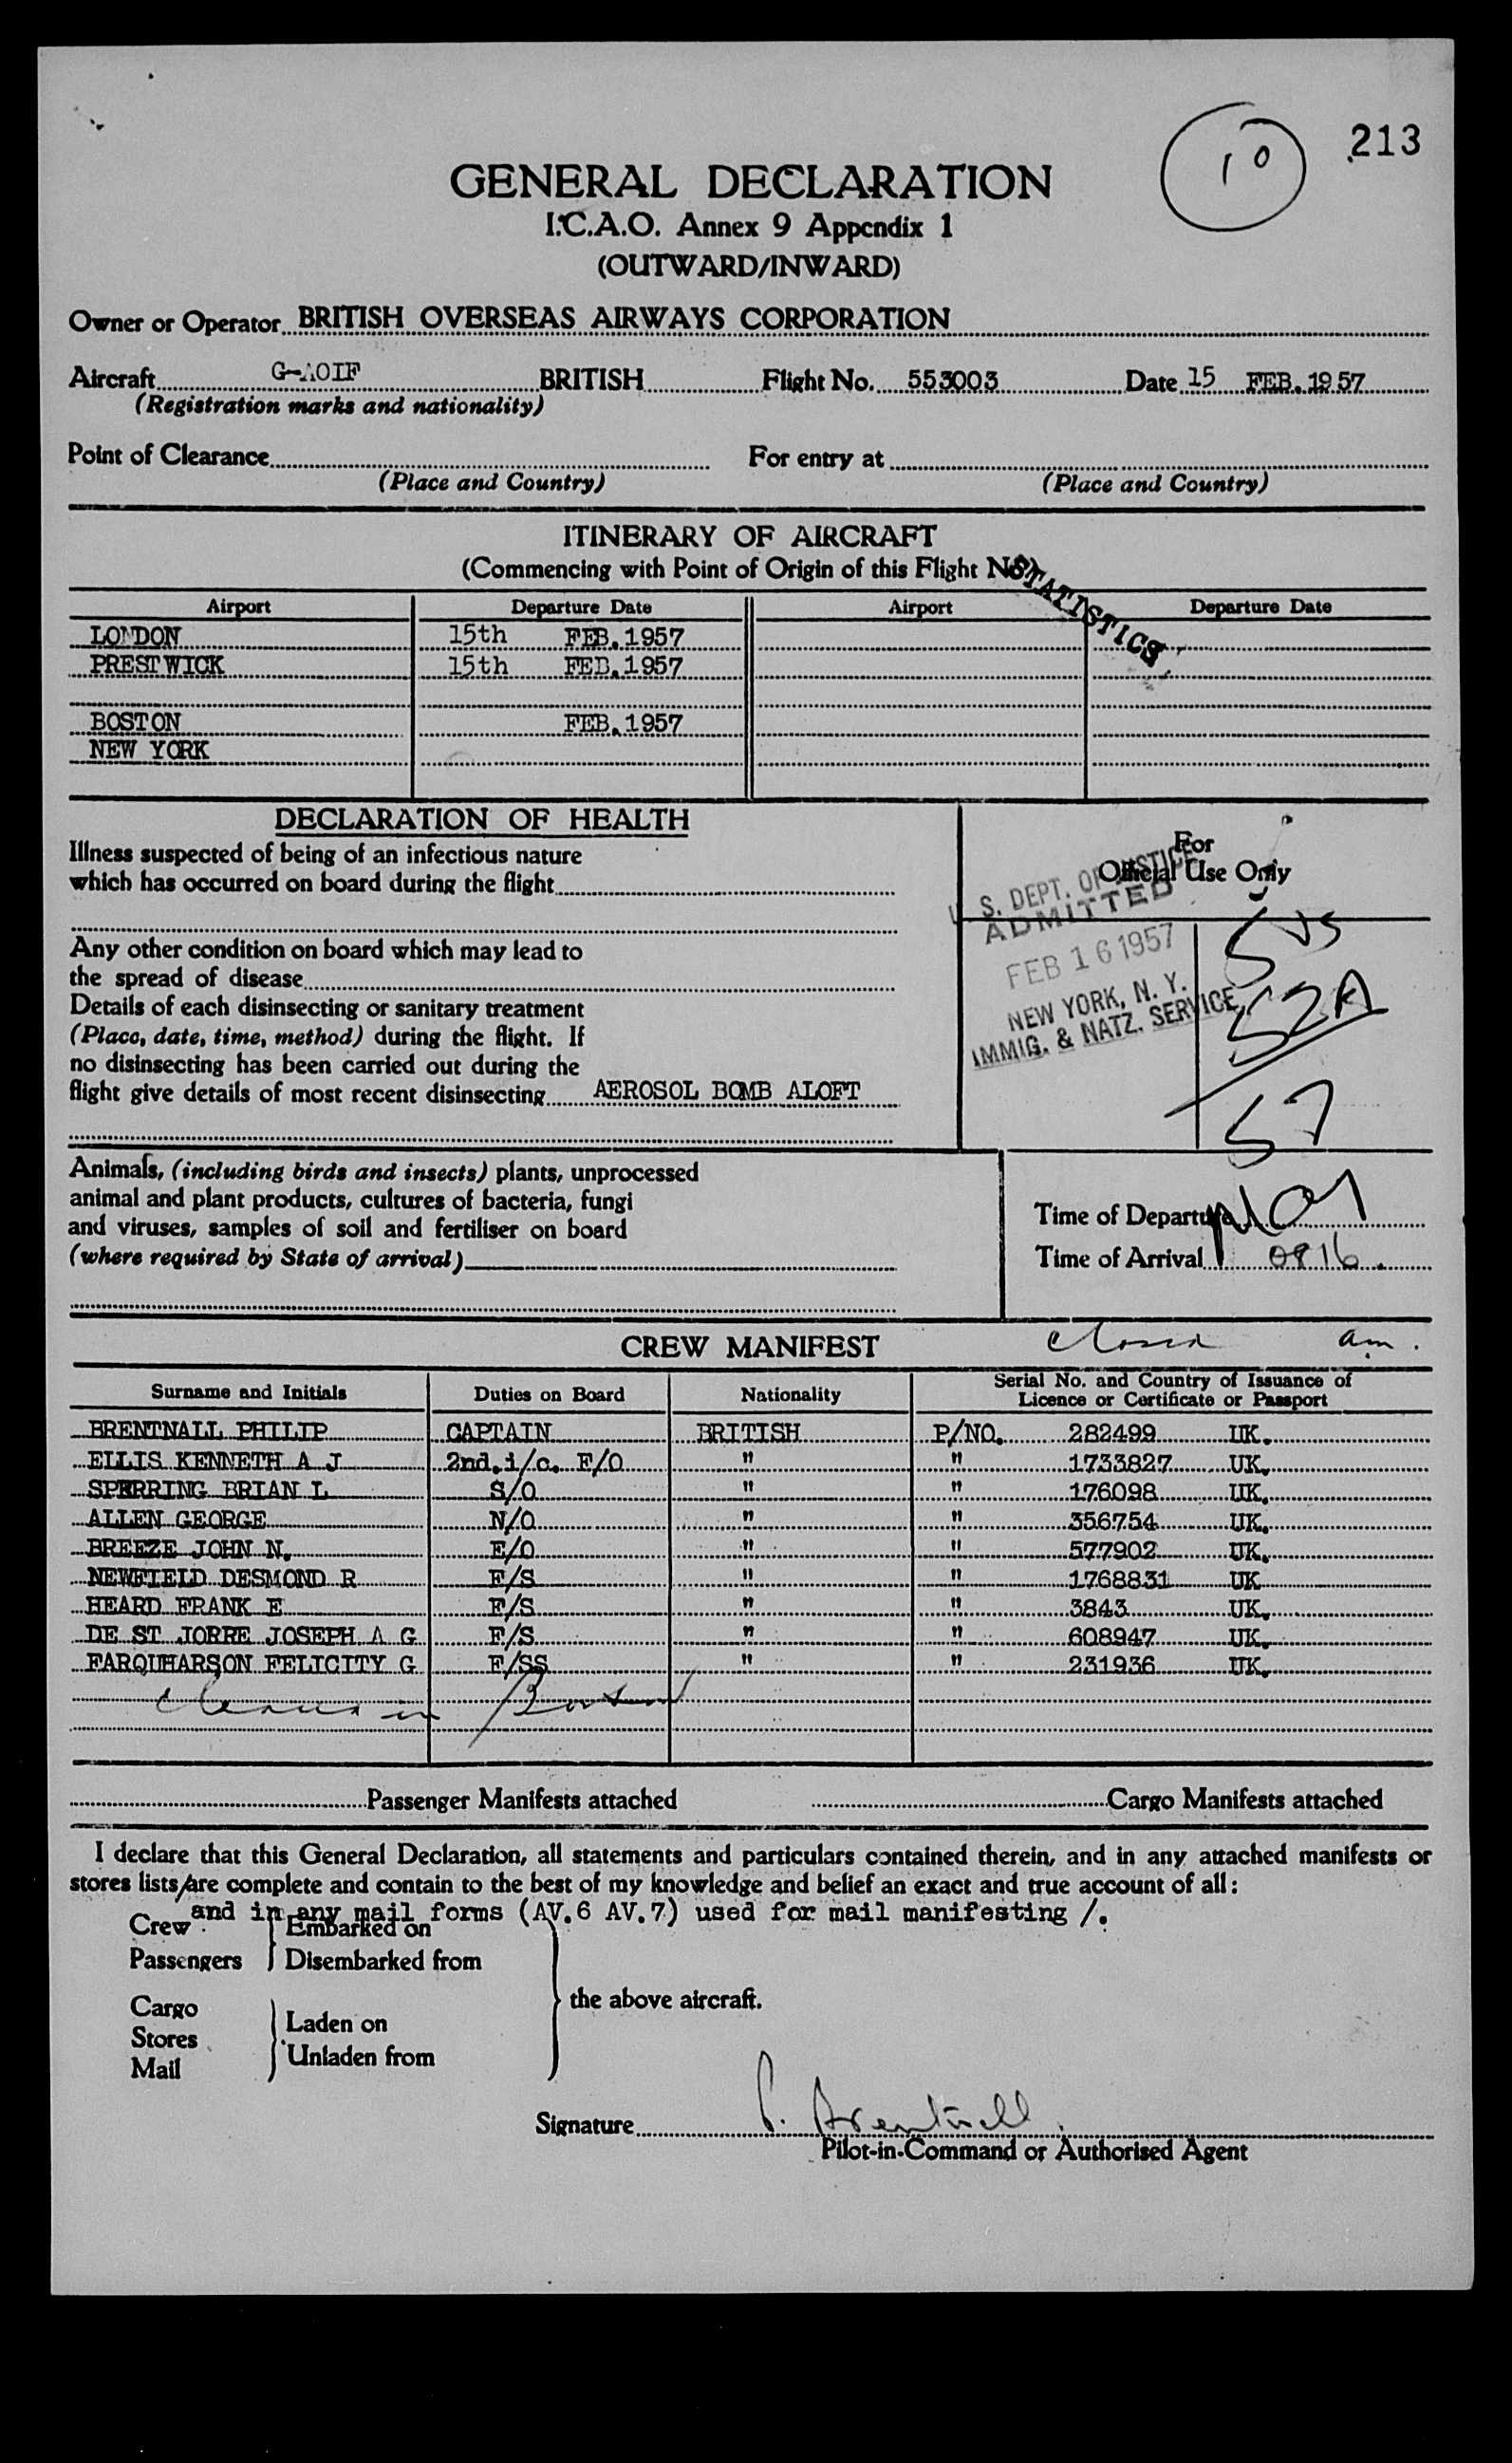 213
10
GENERAL DECLARATION
I.C.A.O. Annex 9 Appendix 1
(OUTWARD/INWARD)
Owner or Operator BRITISH OVERSEAS AIRWAYS CORPORATION
Aircraft G-AOIF BRITISH Flight No. 553003 Date 15 FEB. 1957
(Registration marks and nationality)
Point of Clearance For entry at
(Place and Country) (Place and Country)
ITINERARY OF AIRCRAFT
(Commencing with Point of Origin of this Flight
STATISTICS
Airport Departure Date Airport Departure Date
LONDON 15th FEB. 1957
PRESTWICK 15th FEB. 1957
BOSTON FEB. 1957
NEW YORK
DECLARATION OF HEALTH
Illness suspected of being of an infectious nature
which has occurred on board during the flight
Any other condition on board which may lead to
the spread of disease
Details of each disinsecting or sanitary treatment
(Place, date, time, method) during the flight. If
no disinsecting has been carried out during the
flight give details of most recent disinsecting AEROSOL BOMB ALOFT
For
Official Use Only
U. S. DEPT. OF JUSTICE
ADMITTED
FEB 16 1957
NEW YORK, N. Y.
IMMIG. & NATZ. SERVICE
5 US
52A
57
Animals, (including birds and insects) plants, unprocessed
animal and plant products, cultures of bacteria, fungi
and viruses, samples of soil and fertiliser on board
(where required by State of arrival)
Time of Departure
Time of Arrival 0816
CREW MANIFEST
closed am.
Surname and Initials Duties on Board Nationality Serial No. and Country of Issuance of
Licence or Certificate or Passport
BRENTNALL PHILIP CAPTAIN BRITISH P/NO. 282499 UK.
ELLIS KENNETH A J 2nd.i/c. F/O " " 1733827 UK.
SPERRING BRIAN L S/O " " 176098 UK.
ALLEN GEORGE N/O " " 356754 UK.
BREEZE JOHN N. E/O " " 577902 UK.
NEWFIELD DESMOND R F/S " " 1768831 UK
HEARD FRANK E F/S " " 3843 UK.
DE ST JORRE JOSEPH A G F/S " " 608947 UK.
FARQUHARSON FELICITY G F/SS " " 231936 UK.
in Boston
Passenger Manifests attached Cargo Manifests attached
I declare that this General Declaration, all statements and particulars contained therein, and in any attached manifests or
stores lists/are complete and contain to the best of my knowledge and belief an exact and true account of all:
and in any mail forms (AV.6 AV.7) used for mail manifesting /.
Crew Embarked on
Passengers Disembarked from
the above aircraft.
Cargo
Laden on
Stores
Unladen from
Mail
Signature P. Brentnall
Pilot-in-Command or Authorised Agent